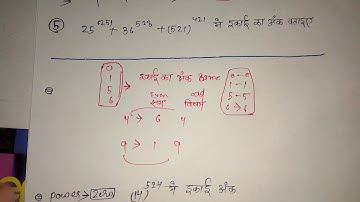 ⑤ 25^1251 + 36^523 + (521)^421 में इकाई का अंक बताइए
0
1
5
6
→ इकाई का अंक Same
0-0
1-1
5-5
6→6
सम विषम
4 → 6 4
9 → 1 9
power → Zero (14)^524 में इकाई अंक